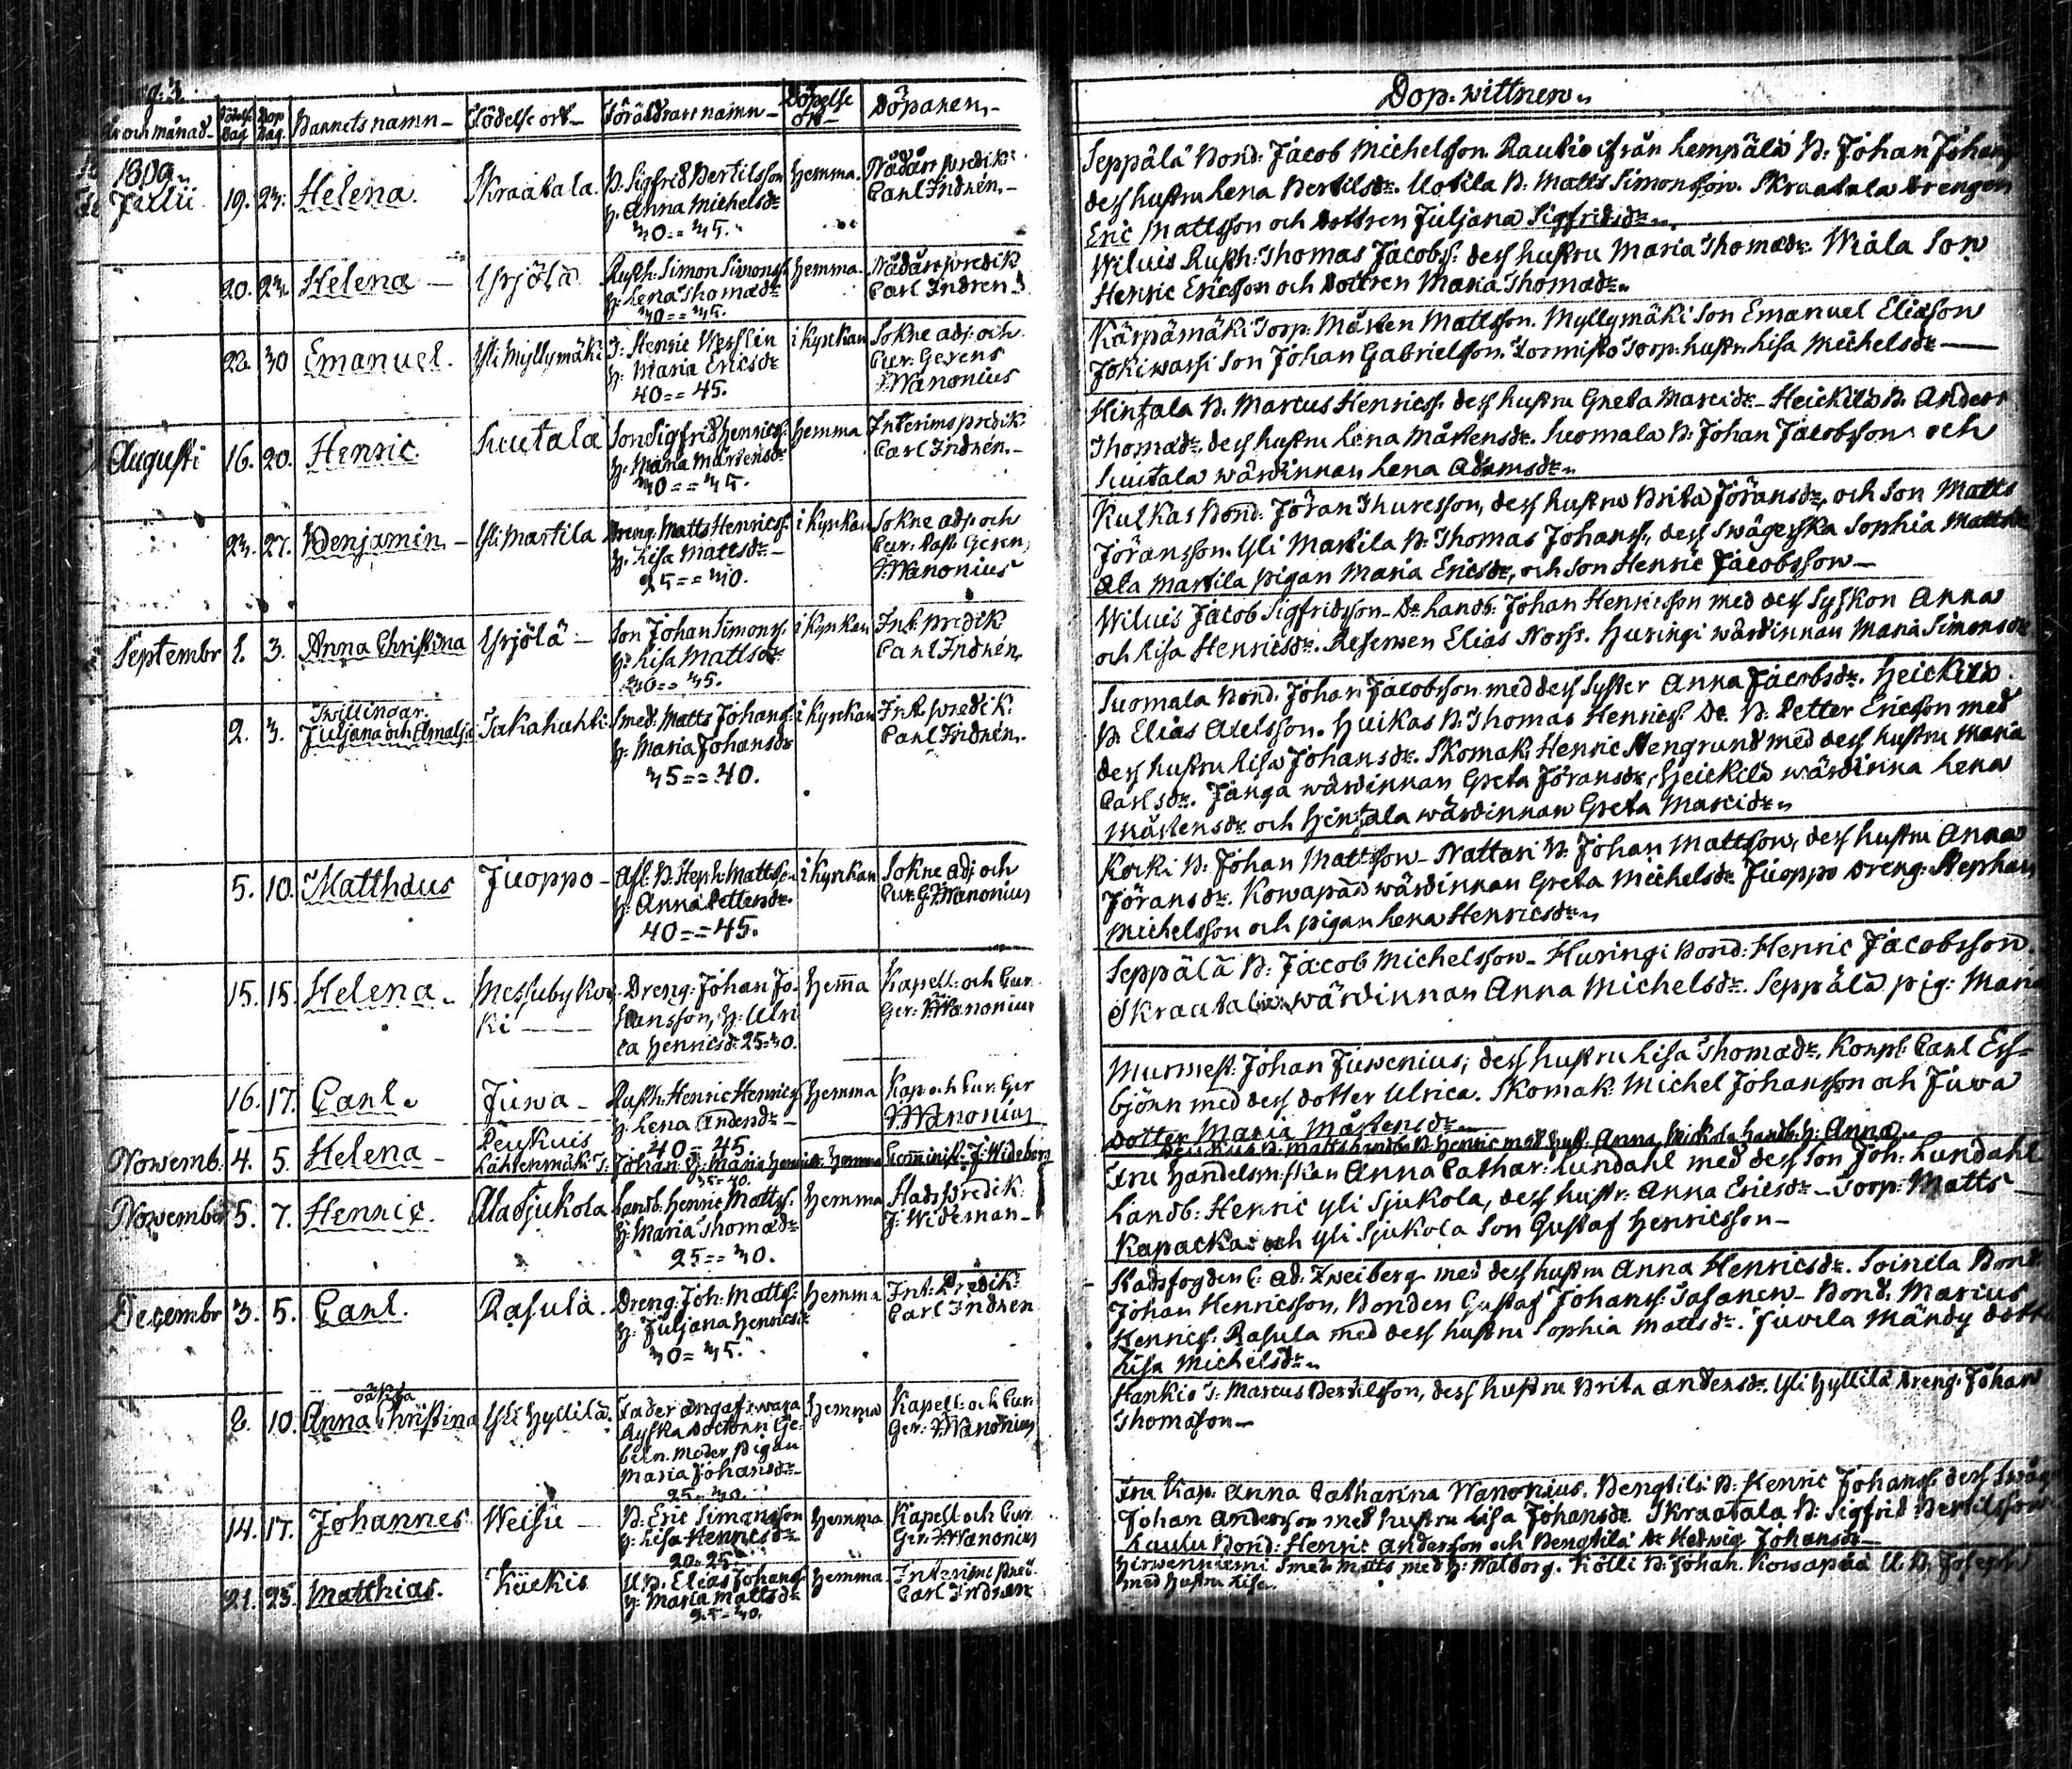 Dop-wittnen
År och månad - Födelse Dag Dop Dag Barnets namn - Födelse ort - Föräldrars namn - Döpelse ort - Döparen -
1809
Julii 19. 23. Helena. Skraatala. B. Sigfrid Bertilsson hemma. Nådårspredik:
h. Anna Michelsdr Carl Indrén -
30 == 35.
20. 23. Helena - Yrjölä Rusth: Simon Simonss. hemma. Nådårspredik
h. Lena Thomædr Carl Indrén
30 == 35.
22. 30 Emanuel. Yli Myllymäki T: Henric Wesslin i kyrkan Sokne adj: och
h: Maria Ericsdr Cur. Gerens
40 == 45. Wanonius
Augusti 16. 20. Henric. Suutala Son Sigfrid Henricss. hemma Interims predik:
h. Maria Mårtensdr Carl Indrén. -
30 == 35.
23. 27. Benjamin - Yli Martila Dreng. Matts Henricss. i kyrkan Sokne adj: och
h. Lisa Mattsdr - Cur. Past. Geren
25 == 30. Wanonius
Septembr 1. 3. Anna Christina Yrjölä - Son Johan Simonss. i kyrkan Int. predik
h. Lisa Mattsdr Carl Indrén
30 == 35.
Twillingar.
2. 3. Juljana och Amalja Takahuhti Smed. Matts Johanss. i kyrkan Int. predik:
h. Maria Johansdr Carl Indrén.
35 == 40.
5. 10. Matthæus Juoppo - Afl: B. Steph: Mattsson i kyrkan Sokne adj och
h: Anna Pettersdr. Cur. G. Wanonius
40 == 45.
15. 15. Helena. Messuby Kos- Dreng: Johan Jo- hem̄a Kapell: och Cur.
ki - hansson, h: Ulri Ger: Wanonius
ca Henricsdr 25=30.
16. 17. Carl. Juwa - Rusth. Henric Henricss hemma Kap och Cur. Ger
h. Lena Andersdr - Wanonius
40 = 45
Nowemb. 4. 5. Helena - Peukuis
Lahtenmäki T: Johan h: Maria Henricsdr hemma Comminist: J: Wideberg
35=40.
Novembr 5. 7. Henric. Ala Sjukola Landb: Henric Mattss. hemma Stads Predik:
h: Maria Thomædr J: Wideman -
25 == 30.
Decembr 3. 5. Carl. Rasula. Dreng: Joh: Mattss: hemma Int: Predik:
h: Juljana Henricsdr Carl Indren
30 = 35.
oäkta
8. 10. Anna Christina Yli Hyllilä. Fader angafs wara hemma Kapell: och Cur.
Ryska Doctorn Ge- Ger: Wanonius
beln. Moder Pigan
Maria Johansdr -
25 = 30.
14. 17. Johannes Weisu - B. Eric Simonsson hemma Kapell och Cur
h: Lisa Henricsdr Ger. Wanonius
20 = 25.
21. 25. Matthias. Kuckis U.B. Elias Johanss hemma Interims Pred.
h: Maria Mattsdr Carl Indren
35 = 40.
Seppälä Bond: Jacob Michelsson. Rautio ifrån Lempälä B: Johan Johans
dess hustru Lena Bertilsdr. Uotila B: Matts Simonsson. Skraatala Drengen
Eric Mattsson och Dottren Juljana Sigfridsdr
Wiluis Rusth: Thomas Jacobss. dess hustru Maria Thomædr. Wiala Son
Henric Ericsson och Dottren Maria Thomædr
Kärpämäki Torp: Mårten Mattsson. Myllymäki Son Emanuel Eliasson
Jokiwarsi Son Johan Gabrielsson. Tormisto Torp: hustru Lisa Michelsdr -
Hintzala B. Marcus Henricss. dess hustru Greta Marcidr - Heickilä B. Anders
Thomædr. dess hustru Lena Mårtensdr. Suomala B: Johan Jacobsson och
Suutala wärdinnan Lena Adamsdr
Kulkas Bond: Jöran Thuresson, dess hustru Brita Jöransdr, och Son Matts
Jöransson. Yli Martila B: Thomas Johanss, dess Swägerska Sophia Mattsdr
Ala Martila pigan Maria Ericsdr, och Son Henric Jacobsson -
Wiluis Jacob Sigfridsson - Dr. Landb: Johan Henricsson med dess Syskon Anna
och Lisa Henricsdr. Reserven Elias Norss. Huringi wärdinnan Maria Simonsdr
Suomala Bond. Johan Jacobsson med dess Syster Anna Jacobsdr. Heickilä
B. Elias Axelsson. Huikas B. Thomas Henricss. De. B. Petter Ericsson med
dess hustru Lisa Johansdr. Skomak. Henric Stengrund med dess hustru Maria
Carlsdr. Janga wärdinnan Greta Jöransdr, Heickilä wärdinna Lena
Mårtensdr och Hintzala wärdinnan Greta Marcidr
Korki B: Johan Mattsson - Nattari B: Johan Mattsson, dess hustru Anna
Jöransdr. Kowapää wärdinnan Greta Michelsdr Juoppo Dreng: Stephan
Michelsson och pigan Lena Henricsdr
Seppälä B: Jacob Michelsson - Huringi Bond: Henric Jacobsson.
Skraatala wärdinnan Anna Michelsdr. Seppälä pig: Maria
Murmest: Johan Juwenius, dess hustru Lisa Thomædr, Korpl: Carl Es-
björn med dess dotter Ulrica. Skomak: Michel Johansson och Juwa
dotter Maria Mårtensdr
Fru Handelsm:skan Anna Cathar: Lundahl med dess Son Joh: Lundahl
Landb: Henric Yli Sjukola, dess hustr: Anna Ericsdr - Torp: Matts
Kapacka och Yli Sjukola Son Gustaf Henricsson -
Stadsfogden C: Ad. Zweiberg med dess hustru Anna Henricsdr. Soinila Bond
Johan Henricsson, Bonden Gustaf Johanss: Tasanen - Bond. Marcus
Henricss: Rasula med dess hustru Sophia Mattsdr. Juvela Mändy dotter
Lisa Michelsdr
Hankio T: Marcus Bertilsson, dess hustru Brita Andersdr. Yli Hyllilä Dreng. Johan
Thomasson -
Fru Kap: Anna Catharina Wanonius. Bengtilä B: Henric Johanss: dess Swåg
Johan Andersson med hustru Lisa Johansdr Skraatala B: Sigfrid Bertilsson
Lautu Bond: Henric Andersson och Bengtilä Dr Hedwig Johansdr -
Hirwenniemi Smed Matts med h: Walborg. Kölli B: Johan. Kowapää U. B. Joseph
med hustru Lisa.